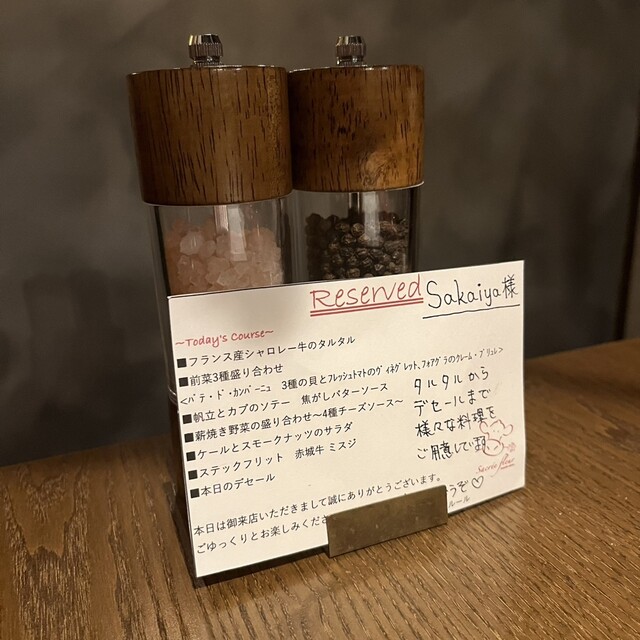 Reserved Sakaiya様
~Today's Course~
■フランス産シャロレー牛のタルタル
■前菜3種盛り合わせ
<パテ・ド・カンパーニュ 3種の貝とフレッシュトマトのヴィネグレット、フォアグラのクレーム・ブリュレ>
■帆立とカブのソテー 焦がしバターソース
■薪焼き野菜の盛り合わせ~4種チーズソース~
■ケールとスモークナッツのサラダ
■ステックフリット 赤城牛 ミスジ
■本日のデセール
タルタルから
デセールまで
様々な料理を
ご用意してます
Sucrée fleur
本日は御来店いただきまして誠にありがとうございます。
ごゆっくりとお楽しみくださ
うぞ♡
ルール